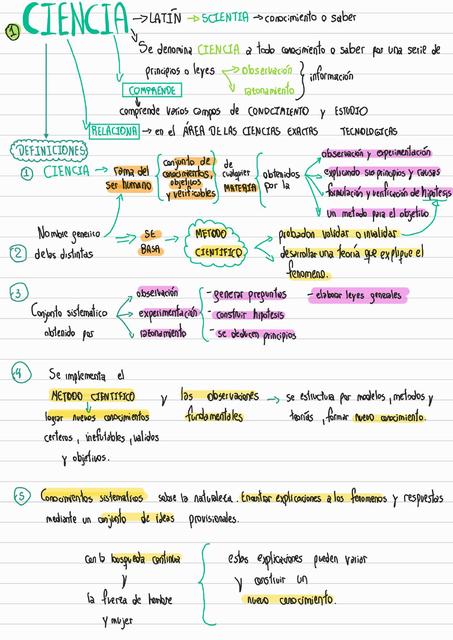 1 CIENCIA → LATÍN → SCIENTIA → conocimiento o saber
Se denomina CIENCIA a todo conocimiento o saber por una serie de
principios o leyes observación
razonamiento
información
COMPRENDE
comprende varios campos de CONOCIMIENTO y ESTUDIO
RELACIONA → en el ÁREA DE LAS CIENCIAS EXACTAS TECNOLOGICAS
DEFINICIONES
1 CIENCIA → rama del ser humano
conjunto de
conocimientos,
objetivos
y verificables
de
cualquier
MATERIA
obtenidos
por la
observación y experimentación
explicando sus principios y causas
formulación y verificación de hipotesis
un metodo para el objetivo
2 Nombre generico
de las distintas
SE
BASA
METODO
CIENTIFICO
probandon validar o invalidar
desarrollar una teoría que explique el
fenomeno.
3 Conjunto sistematico
obtenido por
observación
experimentación
razonamiento
- generar preguntas
- construir hipotesis
- se deducen principios
- elaborar leyes generales
4 Se implementa el
METODO CIENTIFICO y las observaciones → se estructura por modelos, metodos y
lograr nuevos conocimientos fundamentales teorías, formar nuevo conocimiento.
certeros, inefutables, validos
y objetivos.
5 Conocimientos sistematicos sobre la naturaleza. Encontrar explicaciones a los fenomenos y respuestas
mediante un conjunto de ideas provisionales.
con la busqueda continua
y
la fuerza de hombre
y mujer
estas explicaciones pueden variar
y construir un
nuevo conocimiento.